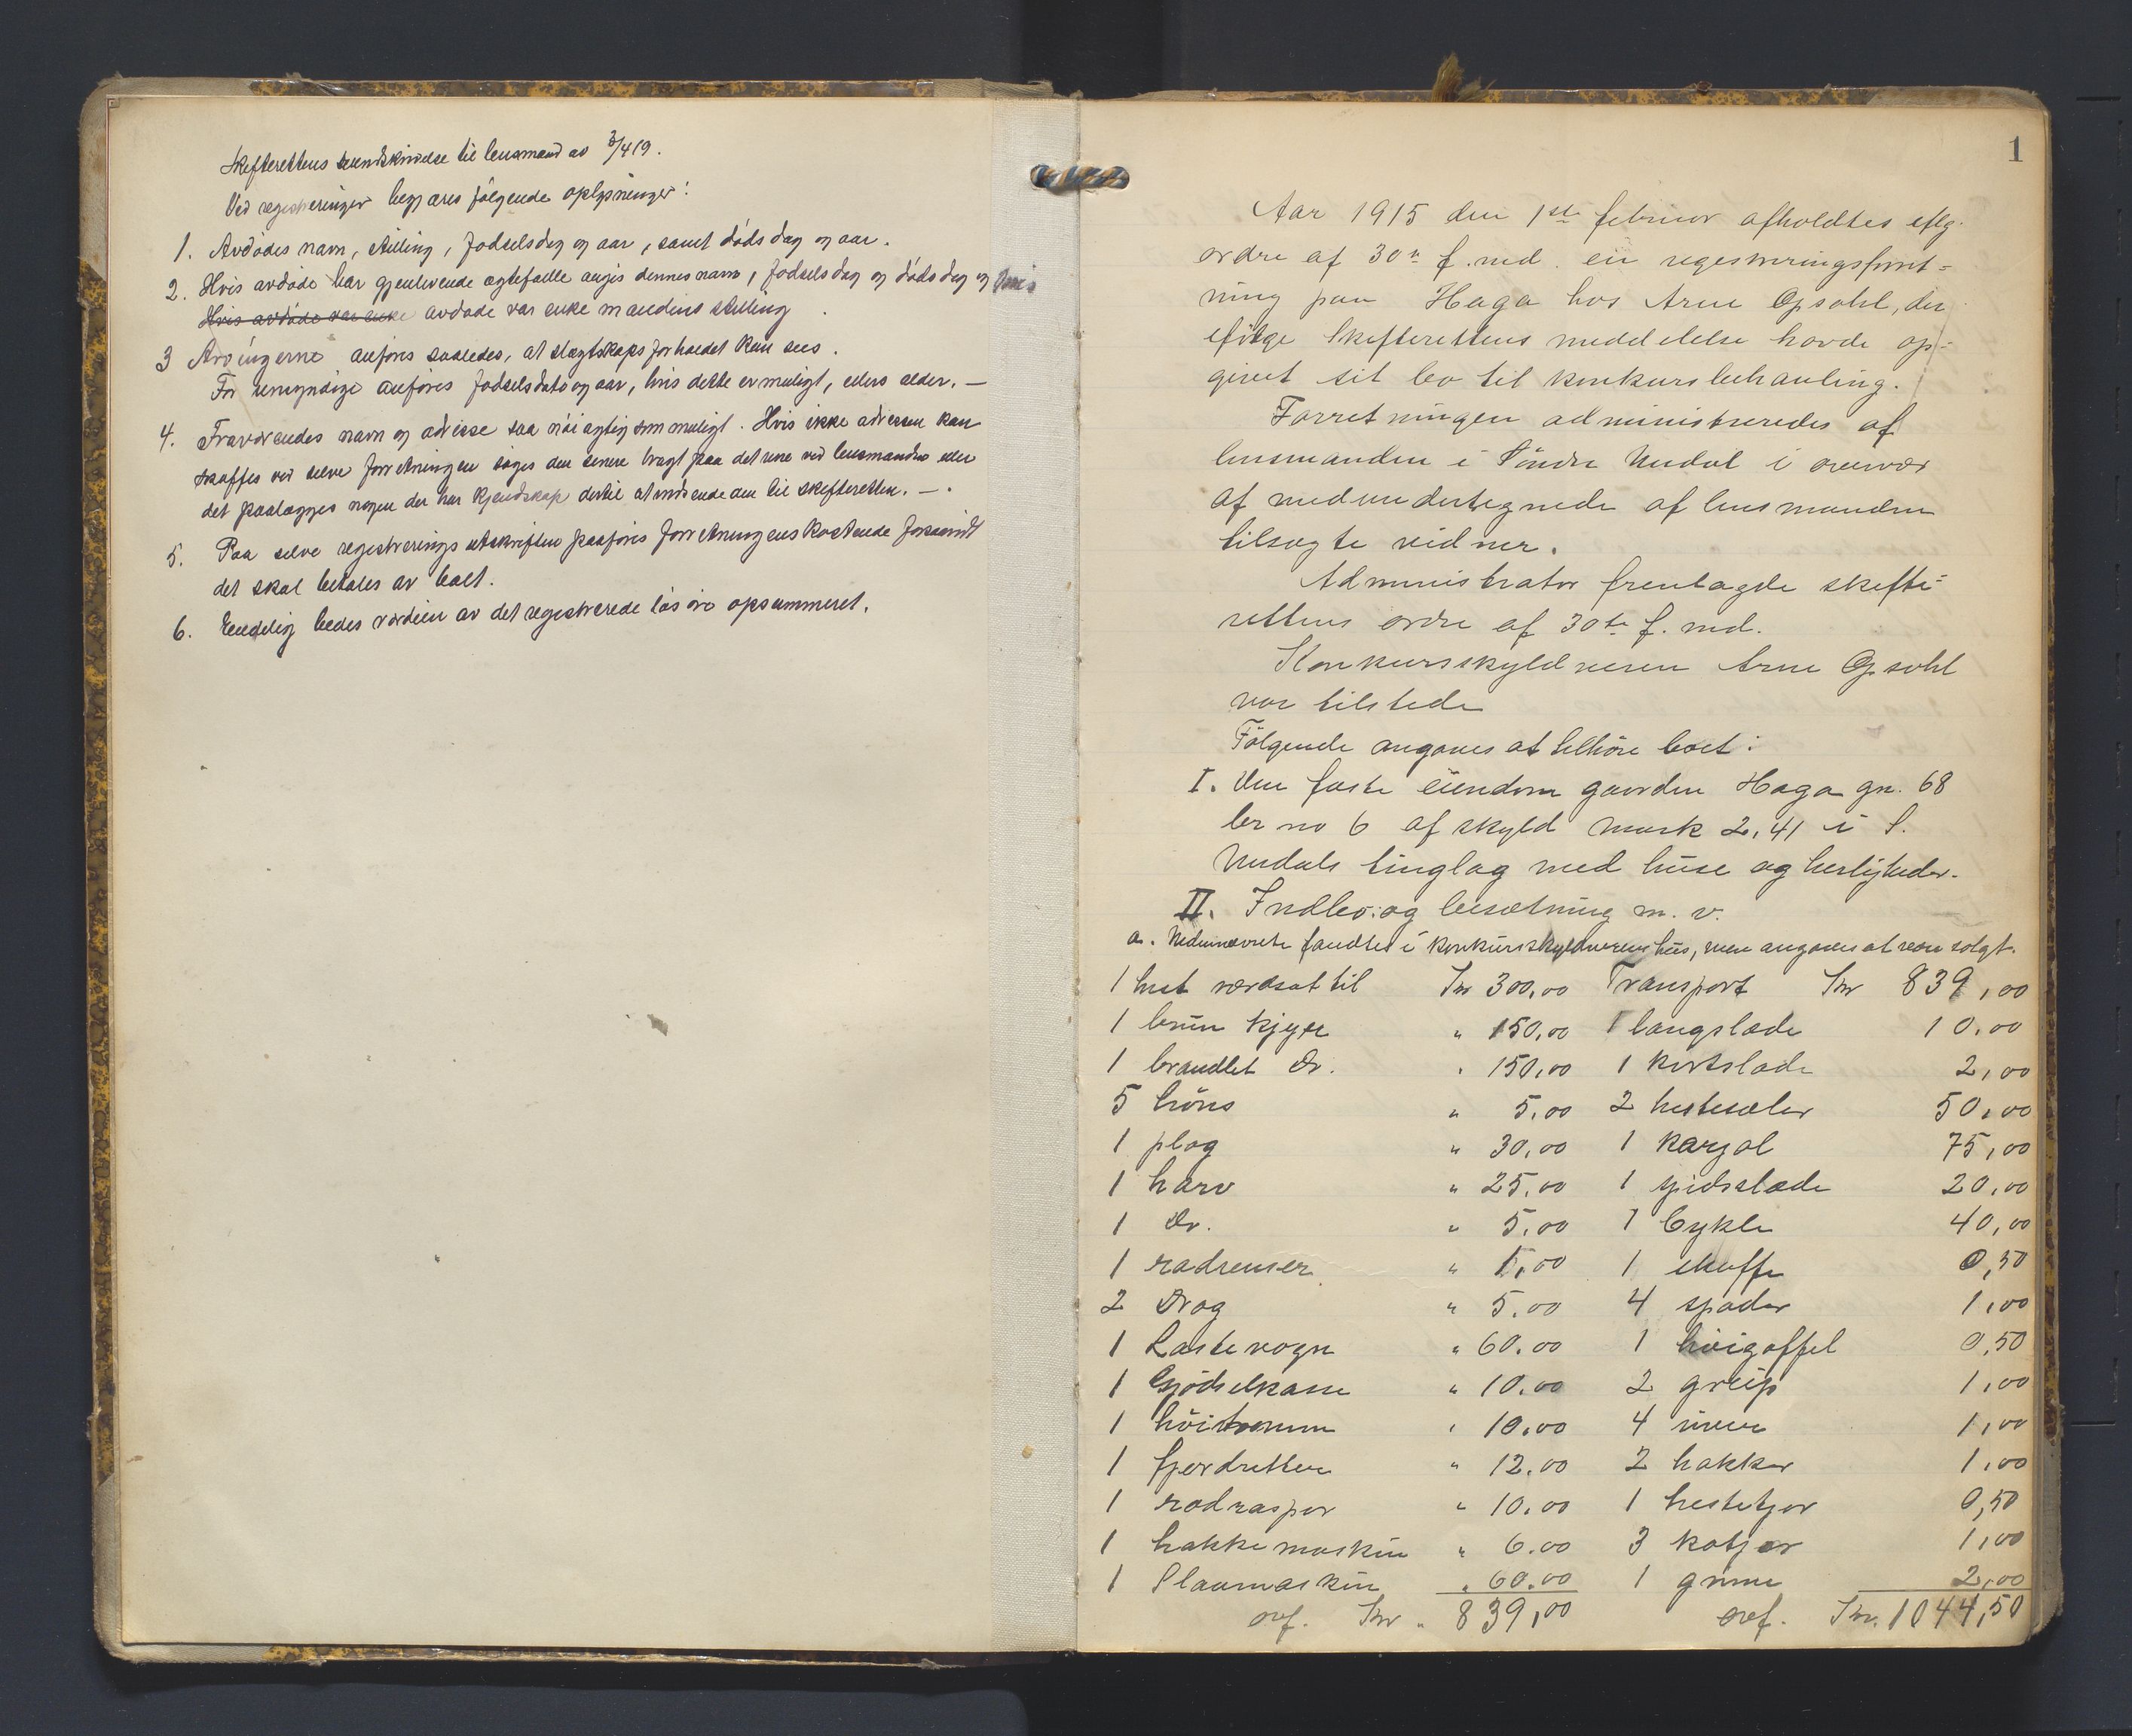 Skifterettens rundskrivelse til lensmand av 3/4 19.
Ved registreringer begjæres følgende oplysninger:
1. Avdødes navn, stilling, fødselsdag og aar, samt dødsdag og aar.
2. Hvis avdøde har gjenlevende ægtefælle angis dennes navn, fødselsdag og dødsdag og hvis
Hvis avdøde var enke avdøde var enke mandens stilling
3 Arvingerne anføres saaledes, at slægtskapsforholdet kan sees.
For umyndige anføres fødselsdato og aar, hvis dette er muligt, ellers alder. —
4. Fraværendes navn og adresse saa nöiagtig som muligt. Hvis ikke adressen kan
skaffes ved selve forretningen søges den senere bragt paa det rene ved lensmanden eller
det paalægges nogen der har kjendskap dertil at indsende den til skifteretten. —.
5. Paa selve registrerings utskriften paaføres forretningens kostende forsaavidt
det skal betales av boet.
6. Endelig bedes værdien av det registrerede løsøre opsummeret.
1
Aar 1915 den 1ste februar afholdtes eflg.
ordre af 30te f. md. en regestreringsforret-
ning paa Haga hos Arne Opsahl, der
efølge skifterettens meddelelse havde op-
givet sit bo til konkursbehanling.
Forretningen administreredes af
lensmanden i Söndre Undal i overvær
af medundertegnede af lensmanden
tilsagte vidner.
Administrator fremlagde skifte-
rettens ordre af 30te f. md.
Konkursskyldneren Arne Opsahl
var tilstede
Følgende angaves at tilhöre boet:
I. Den faste eiendom gaarden Haga gn. 68
br no 6 af skyld mark 2,41 i S.
Undals tinglag med huse og herligheder.
II. Indbo og besætning m. v.
a. Nedennævnte fandtes i konkursskyldnerens hus, men angaves at være solgt.
1 hest værdsat til Kr 300,00 Transport Kr 839,00
1 brun kjyr " 150,00 1 langslæde 10,00
1 brandlet do. " 150,00 1 kortslæde 2,00
5 höns " 5,00 2 hesteseler 50,00
1 plog " 30,00 1 karjol 75,00
1 harv " 25,00 1 spidsslæde 20,00
1 do. " 5,00 1 Cykle 40,00
1 radrenser " 1,00 1 skuffe 0,50
2 drog " 5,00 4 spader 1,00
1 Lastevogn " 60,00 1 höigaffel 0,50
1 Gjödselkasse " 10,00 2 greip 1,00
1 " 10,00 4 river 1,00
1 " 12,00 2 hakker 1,00
1 rodraspor " 10,00 1 hestetjor 0,50
1 hakkemaskin " 6,00 3 kotjor 1,00
1 Slaamaskin " 60,00 1 grime 2,00
ovf. Kr " 839,00 ovf. Kr. 1044,50